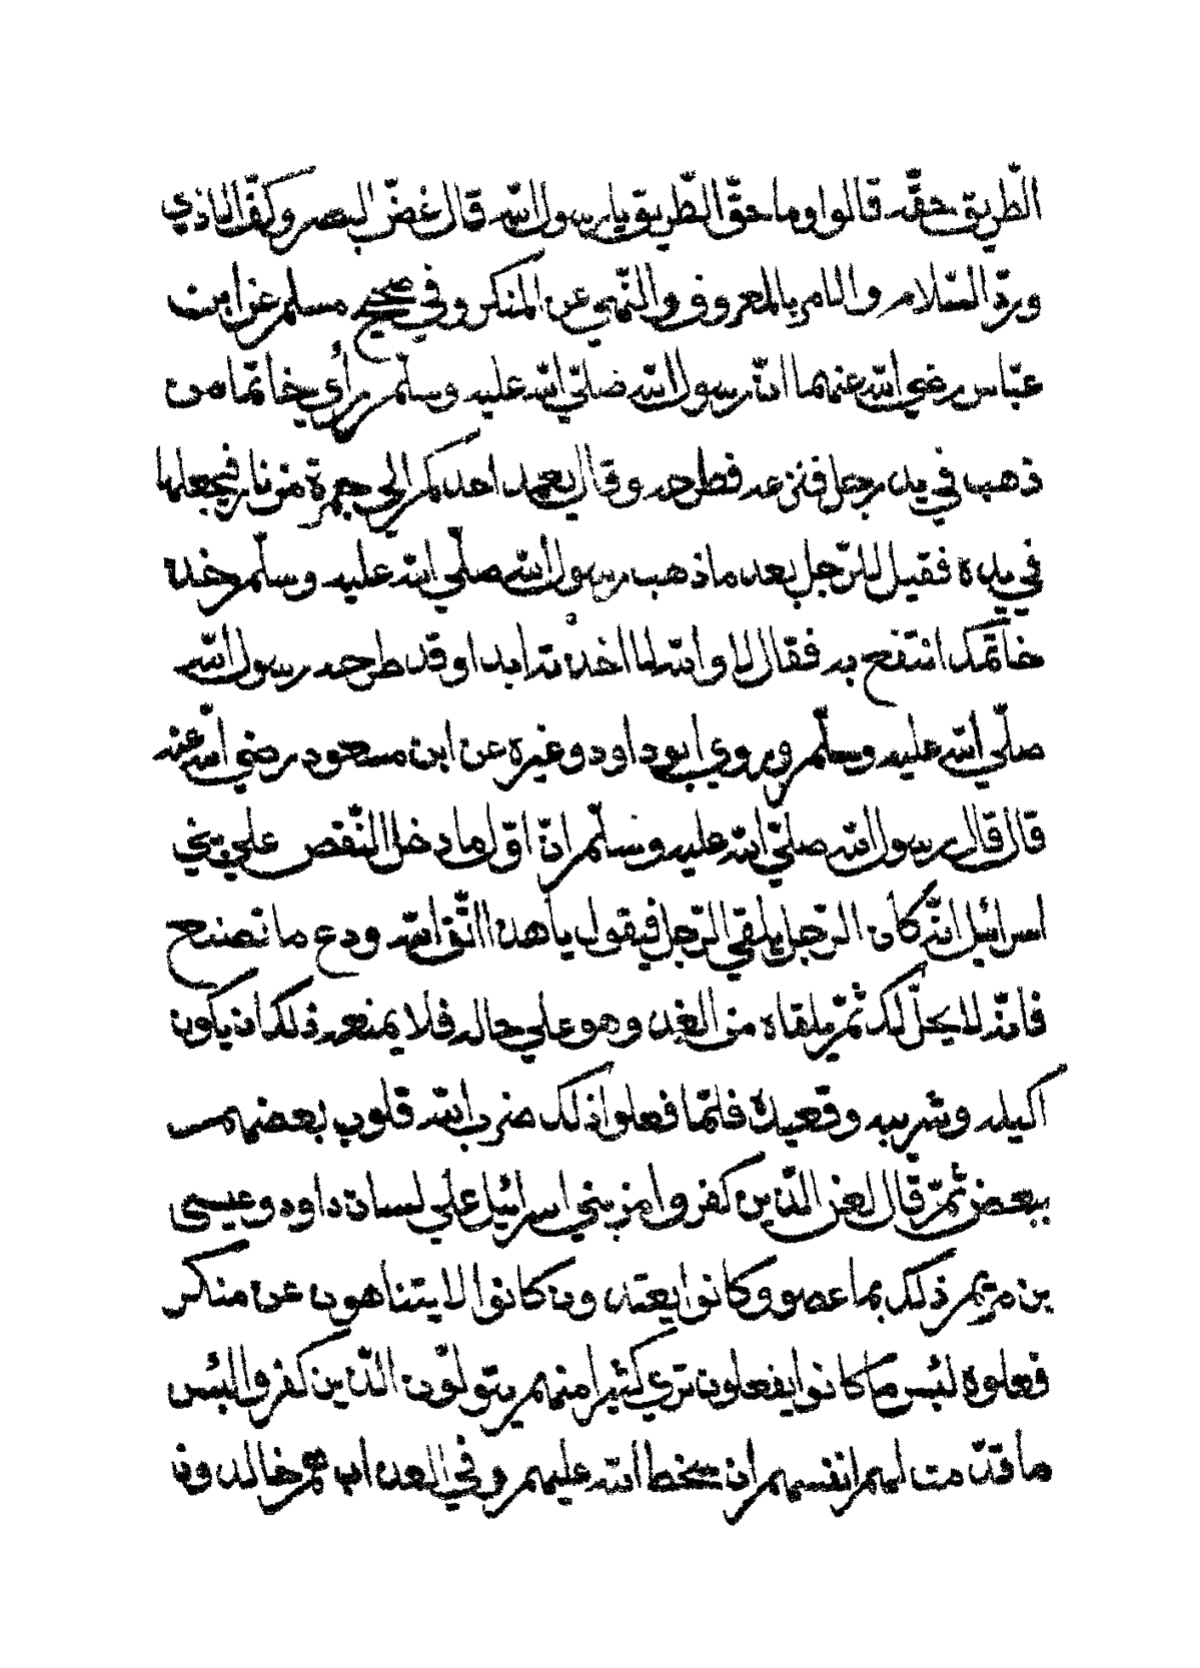 الطّريق حقّه قالوا وما حقّ الطّريق يا رسول اللّه قال غضّ البصر وكفّ الاذي
وردّ السّلام والامر بالمعروف والنّهي عن المنكر وفي صحيح مسلم عن ابن
عبّاس رضي اللّه عنهما انّ رسول اللّه صلّي اللّه عليه وسلّم رأي خاتما من
ذهب في يد رجل فنزعه فطرحه وقال يعمد احدكم الي جمرة من نار فيجعلها
في يده فقيل للرّجل بعد ما ذهب رسول اللّه صلّي اللّه عليه وسلّم خذ
خاتمك انتفع به فقال لا واللّه لا اخذته ابدا وقد طرحه رسول اللّه
صلّي اللّه عليه وسلّم وروي ابو داود وغيره عن ابن مسعود رضي اللّه عنه
قال قال رسول اللّه صلّي اللّه عليه وسلّم انّ اوّل ما دخل النّقص علي بني
اسرائيل انّه كان الرّجل يلقي الرّجل فيقول يا هذا اتّق اللّه ودع ما تصنع
فانّه لا يحلّ لك ثمّ يلقاه من الغد وهو علي حاله فلا يمنعه ذلك ان يكون
اكيله وشريبه وقعيده فلمّا فعلوا ذلك ضرب اللّه قلوب بعضهم
ببعض ثمّ قال لعن الّذين كفروا من بني اسرائيل علي لسان داود وعيسى
بن مريم ذلك بما عصو وكانوا يعتدون كانوا لا يتناهون عن منكر
فعلوه لبئس ما كانوا يفعلون تري كثيرا منهم يتولّون الّذين كفروا لبئس
ما قدّمت لهم انفسهم ان سخط اللّه عليهم وفي العذاب هم خالدون